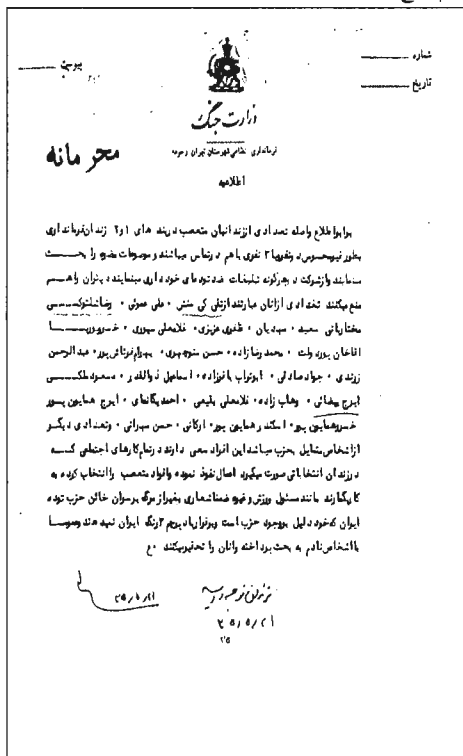 شماره
تاریخ
پیوست
وزارت جنگ
فرمانداری نظامی شهرستان تهران و حومه
محرمانه
اطلاعیه
برابر اطلاع واصله تعدادی از زندانیان متعصب در بند های ۱ و ۲ زندان فرمانداری
بطور غیرمحسوس دو نفر و یا ۳ نفری با هم در تماس میباشند و موضوعات مضره را بحث
مینمایند و از شرکت در هرگونه تبلیغات ضد توده‌ای خودداری مینمایند دیگران را هم
منع میکنند تعدادی از آنان عبارتند از تقی کی منش ۰ علی عموئی ۰ رضا شلتوکی
مختاریانی سعید ۰ سیدیان ۰ ظفری عزیزی ۰ غلامعلی سپوری ۰ خسرو پوریا
آقاخان پور دولت ۰ محمد رضا زاده ۰ حسن منوچهری ۰ بهرام فرنائی پور ۰ عبدالرحمن
زرندی ۰ جواد صادقی ۰ ابوتراب باقرزاده ۰ اسماعیل ذوالقدر ۰ مسعود ملکی
ایرج ۰ وهاب زاده ۰ غلامعلی بقیعی ۰ احمد یگانه‌ای ۰ ایرج همایون پور
خسرو همایون پور ۰ اسکندر همایون پور ۰ ارکانی ۰ حسن مهرانی ۰ و تعدادی دیگر
از اشخاص متمایل بحزب میباشد این افراد سعی دارند در تمام کارهای اجتماعی که
در زندان انتخاباتی صورت میگیرد اعمال نفوذ نموده و افراد متعصب را انتخاب کرده به
کار بگمارند مانند مسئول ورزش و غیره ضمنا شعاری بغیر از مرگ بر سران خائن حزب توده
ایران که خود دلیل بوجود حزب است و برقرار باد پرچم ۳ رنگ ایران نمیدهند و
با اشخاص نادم به بحث پرداخته و آنان را تحقیر میکنند ۰ ع
۳۵/۵/۲۱